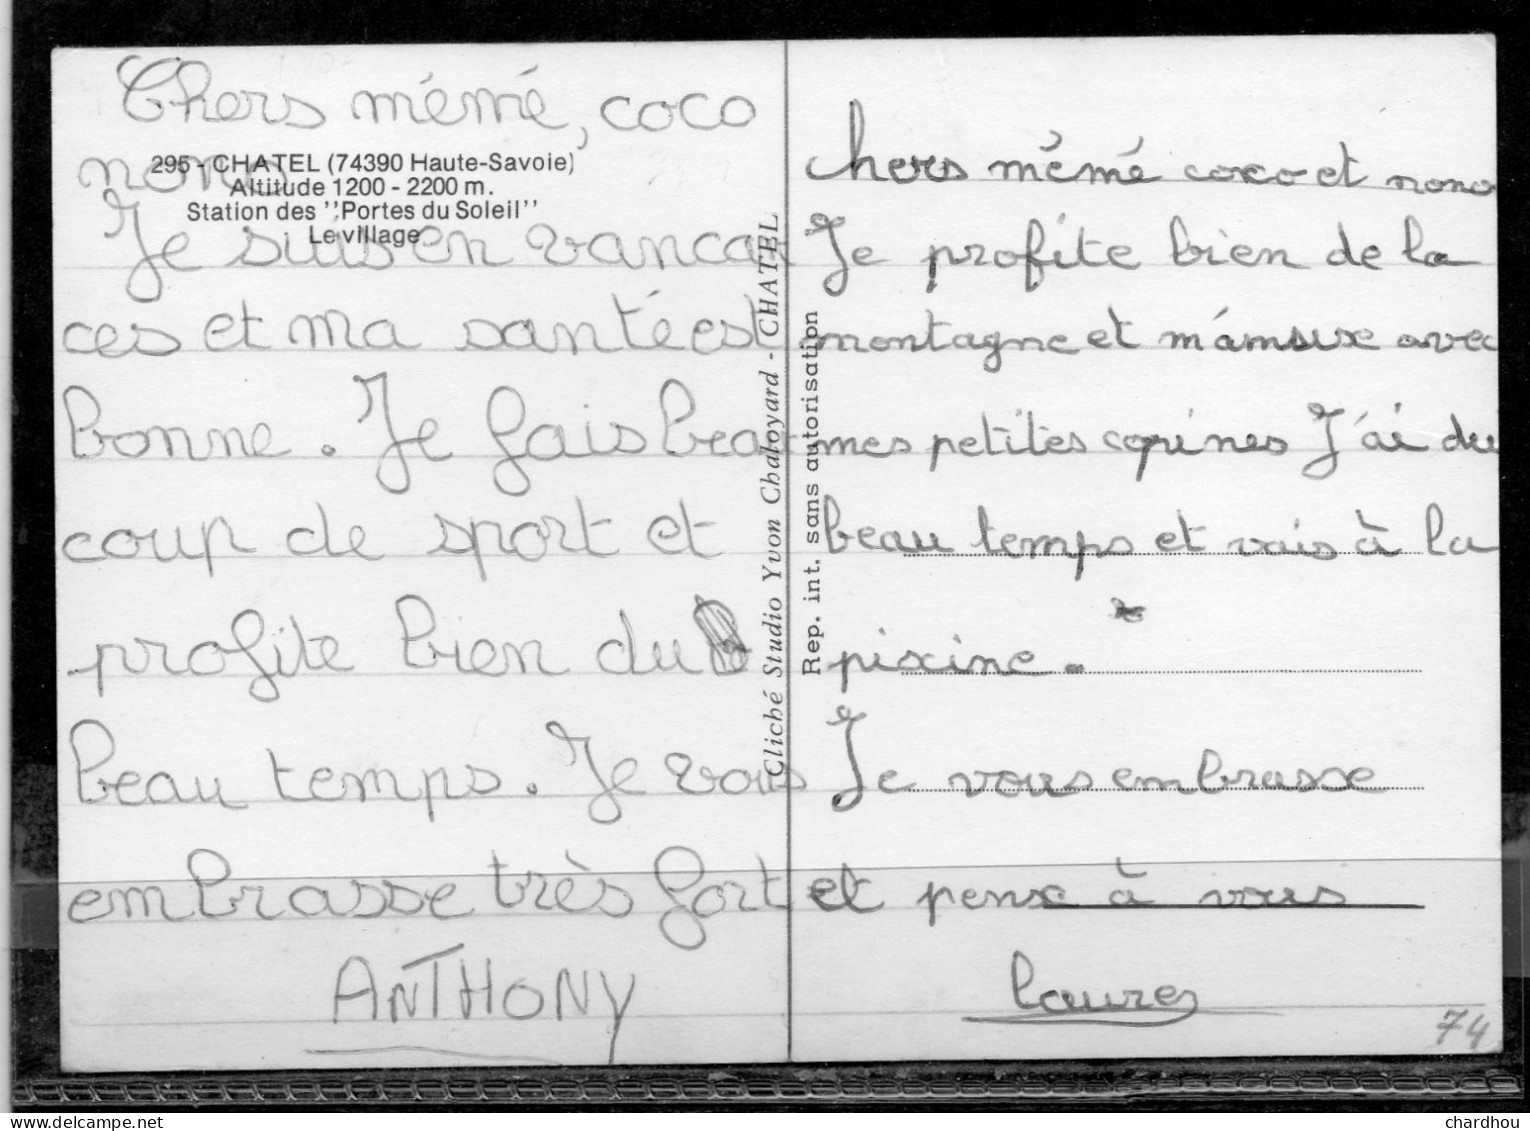 Chers mémé, coco
nono
295 - CHATEL (74390 Haute-Savoie)
Altitude 1200 - 2200 m.
Station des "Portes du Soleil"
Le village
Je suis en vancan
ces et ma santé est
bonne. Je fais beau
coup de sport et
profite bien du
beau temps. Je vous
embrasse très fort
ANTHONY
Cliché Studio Yvon Chaloyard - CHATEL
Rep. int. sans autorisation
chers mémé coco et nono
Je profite bien de la
montagne et m'amuse avec
mes petites copines J'ai du
beau temps et vais à la
piscine.
Je vous embrasse
et pense à vous
74
chardhou